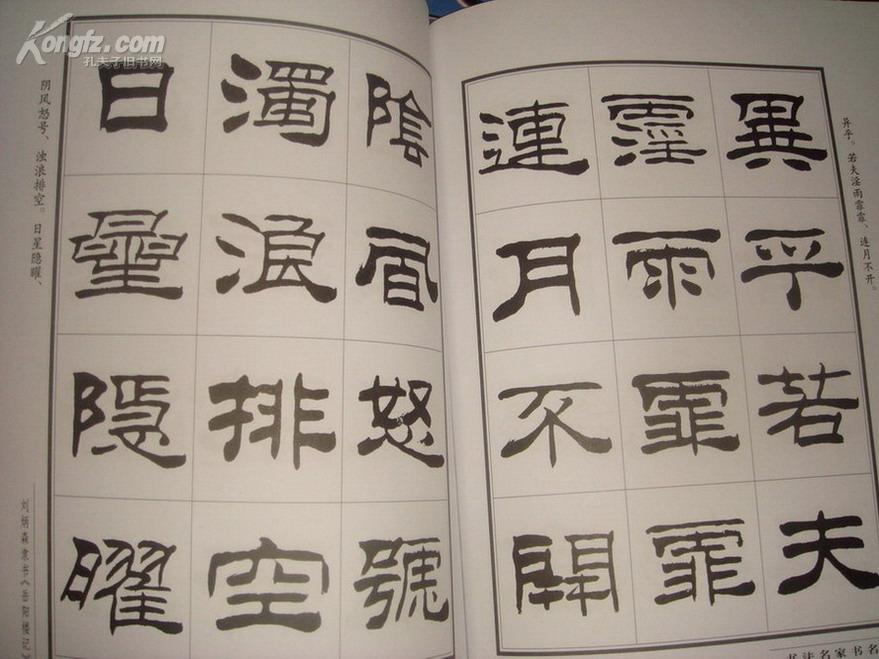 Kongfz.com
孔夫子旧书网
异乎。若夫淫雨霏霏、连月不开。
異乎若夫
霪雨霏霏
連月不開
书法名家书名
陰風怒號
濁浪排空
日曐隱曜
阴风怒号、浊浪排空。日星隐曜、
刘炳森隶书《岳阳楼记》